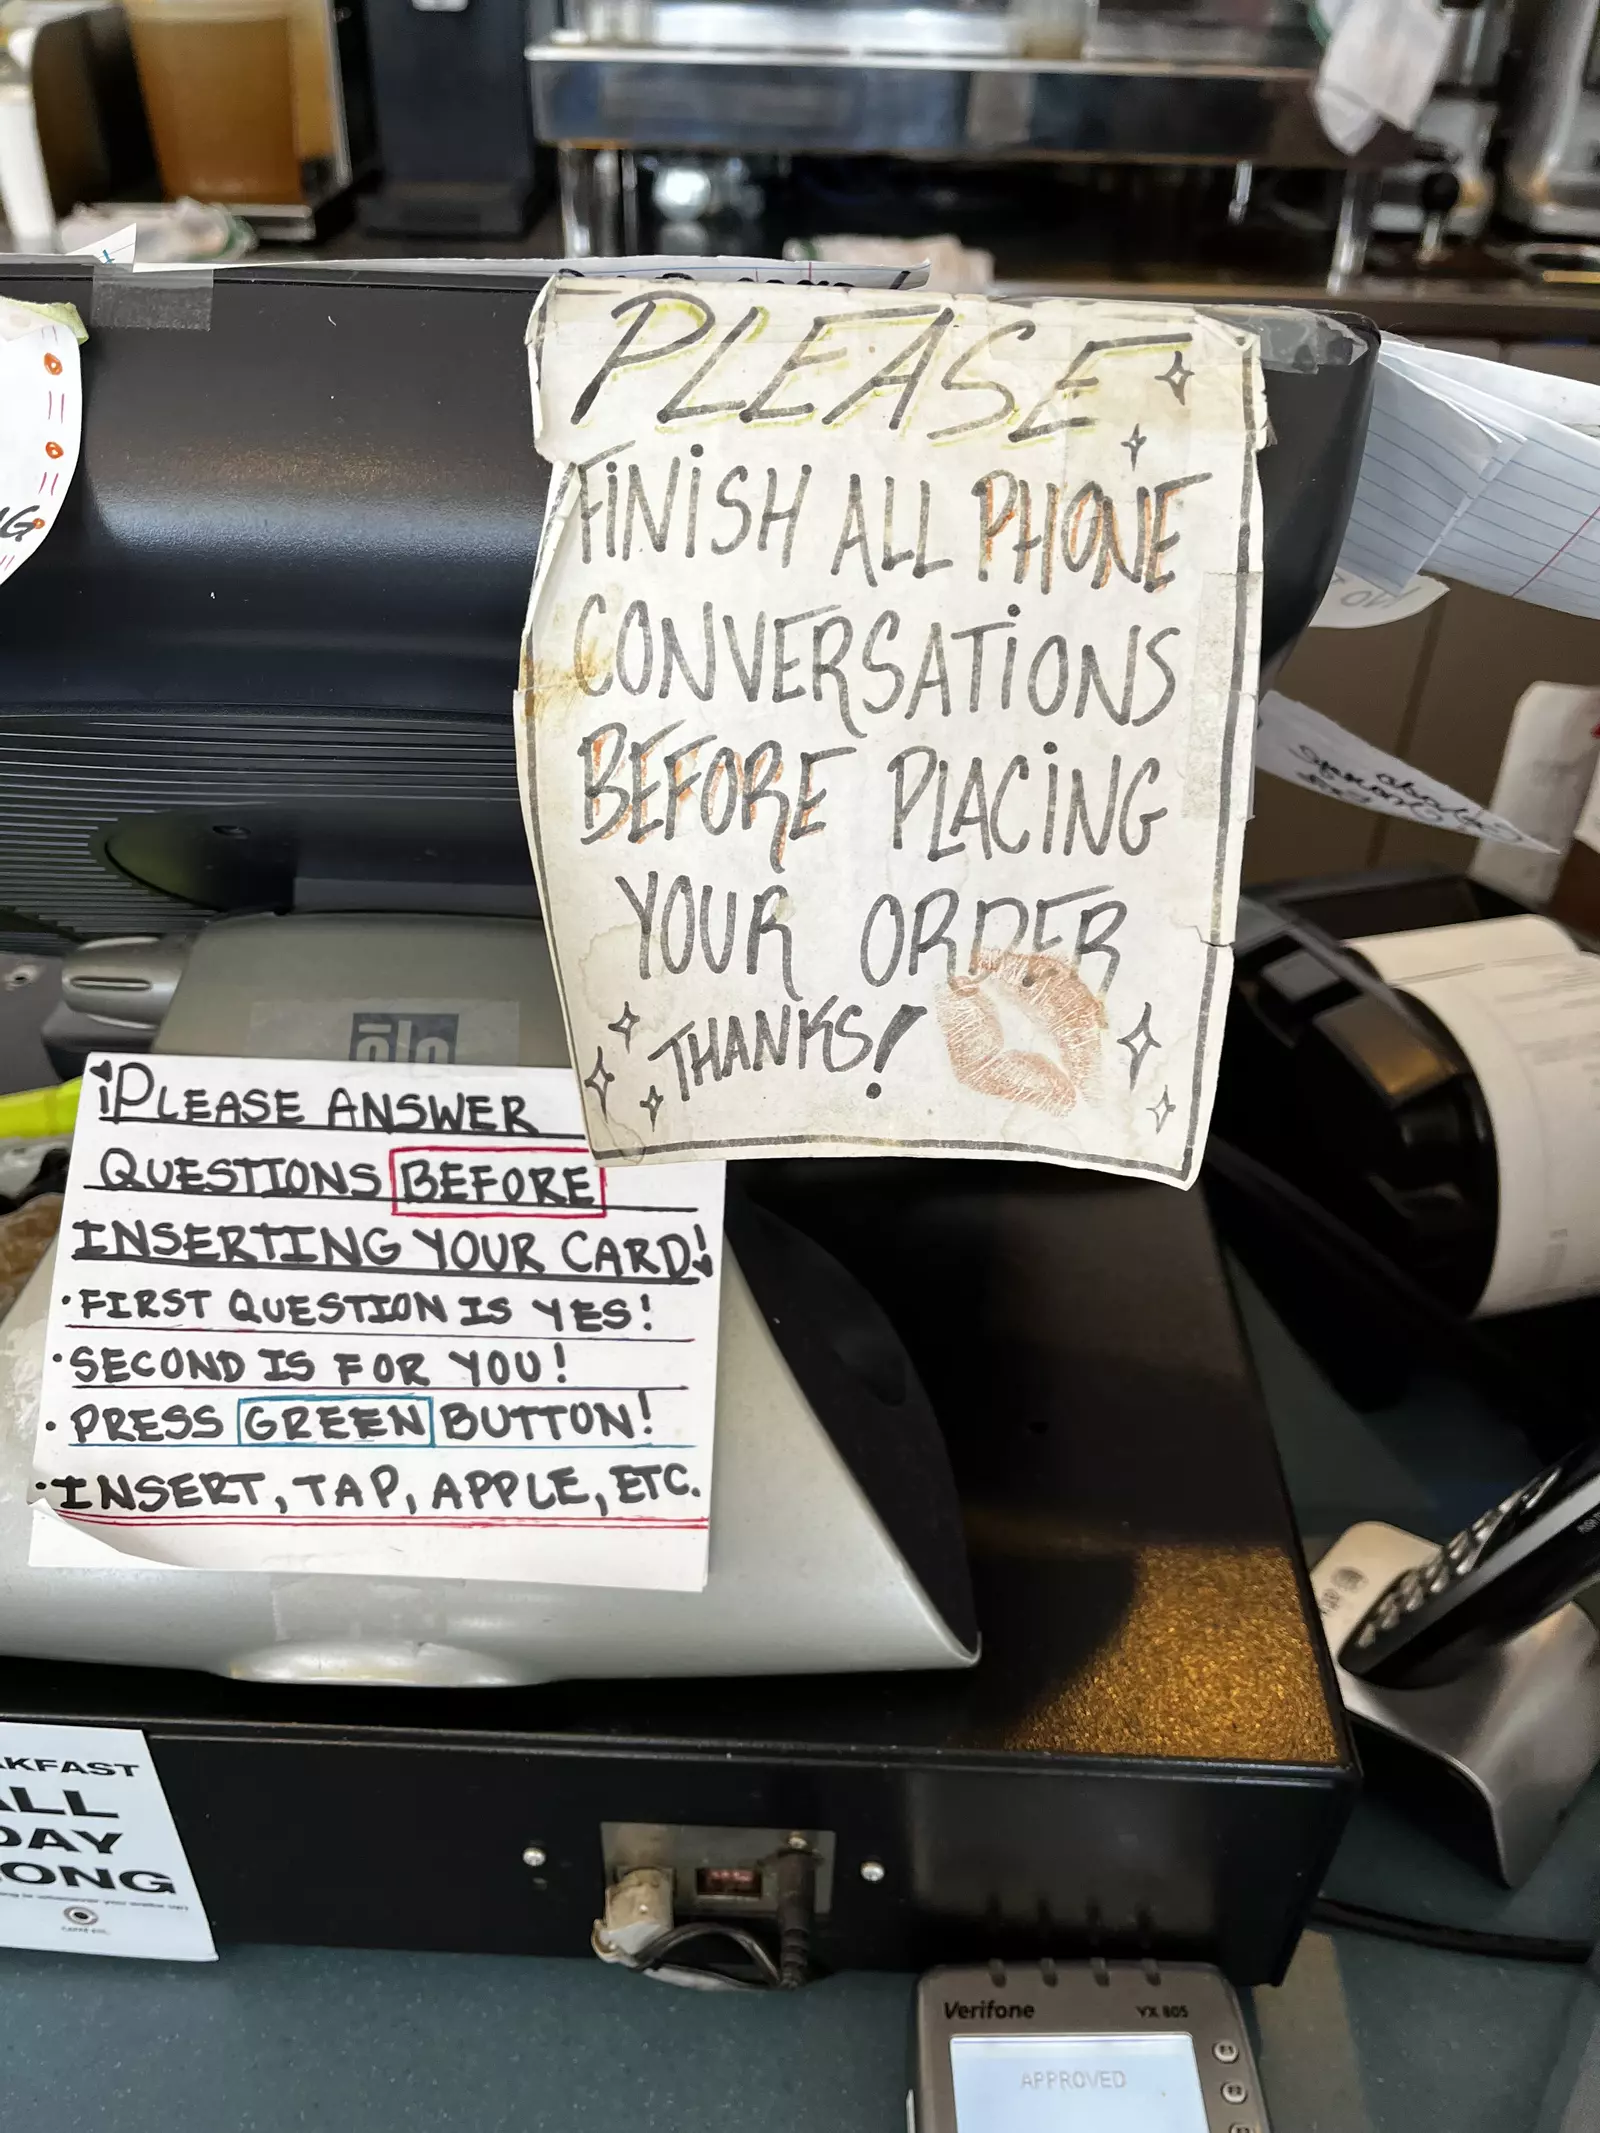 PLEASE
FINISH ALL PHONE
CONVERSATIONS
BEFORE PLACING
YOUR ORDER
THANKS!
elo
¡PLEASE ANSWER
QUESTIONS BEFORE
INSERTING YOUR CARD!
·FIRST QUESTION IS YES!
·SECOND IS FOR YOU!
·PRESS GREEN BUTTON!
·INSERT, TAP, APPLE, ETC.
AKFAST
ALL
DAY
ONG
Verifone VX 805
APPROVED
F1
F2